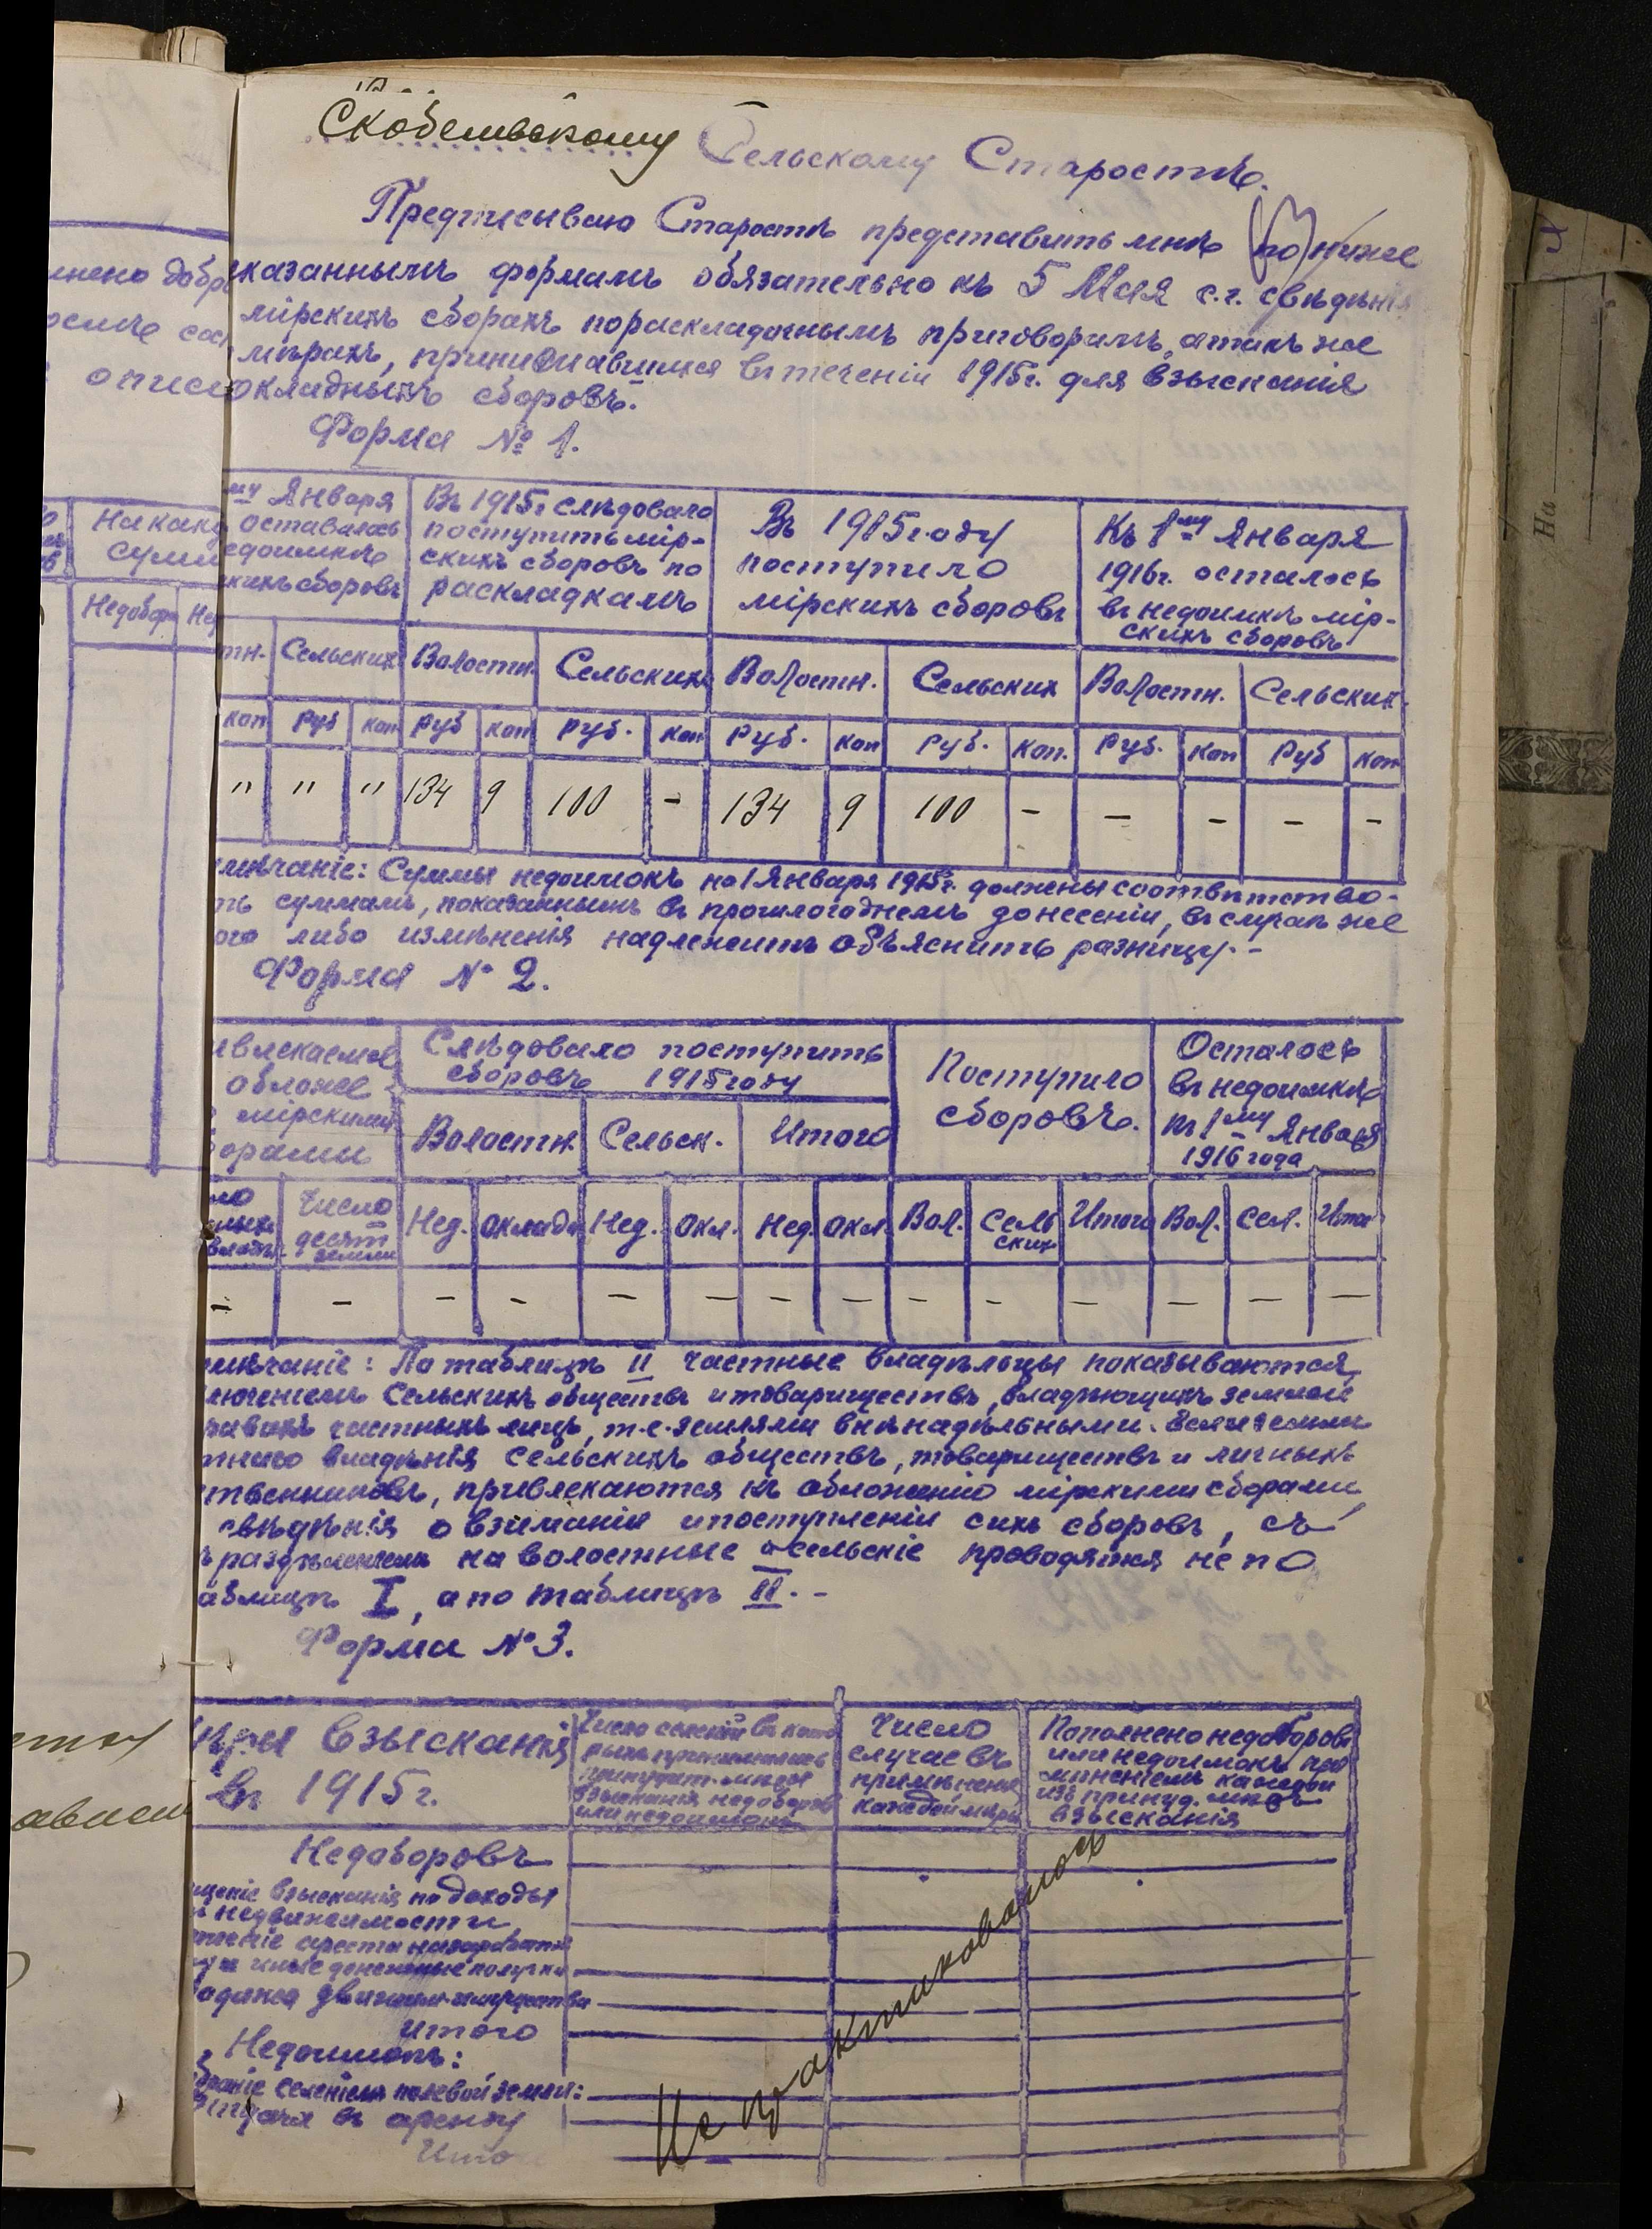 Скобелевскому Сельскому Старостѣ.
Предписываю Старостѣ представить мнѣ по ниже
казаннымъ формамъ обязательно къ 5 Мая с.г. свѣдѣнія
мірскихъ сборахъ пораскладочнымъ приговорамъ, атакъ же
мѣрахъ, принимавшихся въ теченіи 1915г. для взысканія
окладныхъ сборовъ.
Форма № 1.
му Января
оставалось
едоимкѣ
кихъ сборовъ
Въ 1915г слѣдовало
поступить мір-
скихъ сборовъ по
раскладкамъ
Въ 1915 году
поступило
мірскихъ сборовъ
Къ 1му Января
1916г. осталось
въ недоимкѣ мір-
скихъ сборовъ
тн. Сельскихъ Волостн. Сельскихъ Волостн. Сельских Волостн. Сельских.
коп руб коп руб коп руб. коп руб. коп руб. коп. руб. коп руб коп
" " " 134 9 100 - 134 9 100 - - - - -
мѣчаніе: Суммы недоимокъ на 1 Января 1915г. должны соотвѣтство-
ть суммамъ, показаннымъ въ прошлогоднемъ донесеніи, въ случаѣ же
ого либо измѣненія надлежитъ объяснить разницу.-
Форма № 2.
ивлекаемое
обложе
мірскими
орами
Слѣдовало поступить
сборовъ 1915 году
Волостн. Сельск. Итого
Поступило
сборовъ.
Осталось
въ недоимкѣ
къ 1му Января
1916 года
Число
десят
земли
Нед. оклада Нед. окл. Нед. окл. Вол. Сель
ских Итого Вол. Сел. Итог
- - - - - - - - - - - - - -
мѣчаніе: По таблицѣ II частные владѣльцы показываются,
люченіемъ Сельскихъ обществъ и товариществъ, владѣющихъ землею
равахъ частныхъ лицъ, т.е. землями внѣнадѣльными. Если земли
тнаго владѣнія Сельскихъ обществъ, товариществъ и личныхъ
ственниковъ, привлекаются къ обложенію мірскими сборами
свѣдѣнія о взиманіи и поступленіи сихъ сборовъ, съ
раздѣленіемъ на волостные и сельскіе проводятся не по
аблицѣ I, а по таблицѣ II.-
Форма № 3.
мѣры Взысканія
въ 1915г.
Число селеній въ кото
рыхъ примѣнялись
принудит. мѣры
взысканія недоборовъ
или недоимокъ
Число
случаевъ
примѣненія
каждой мѣры
Пополнено недоборовъ
или недоимокъ при
мѣненіемъ каждой
изъ принуд. мѣръ
взысканія
Недоборовъ
щеніе взысканія на доходы
недвижимости
иные денежные получки
одажа движим. имущества
итого
Недоимокъ:
браніе селеніемъ полевой земли:
въ аренду
Ито
Не практиковалось